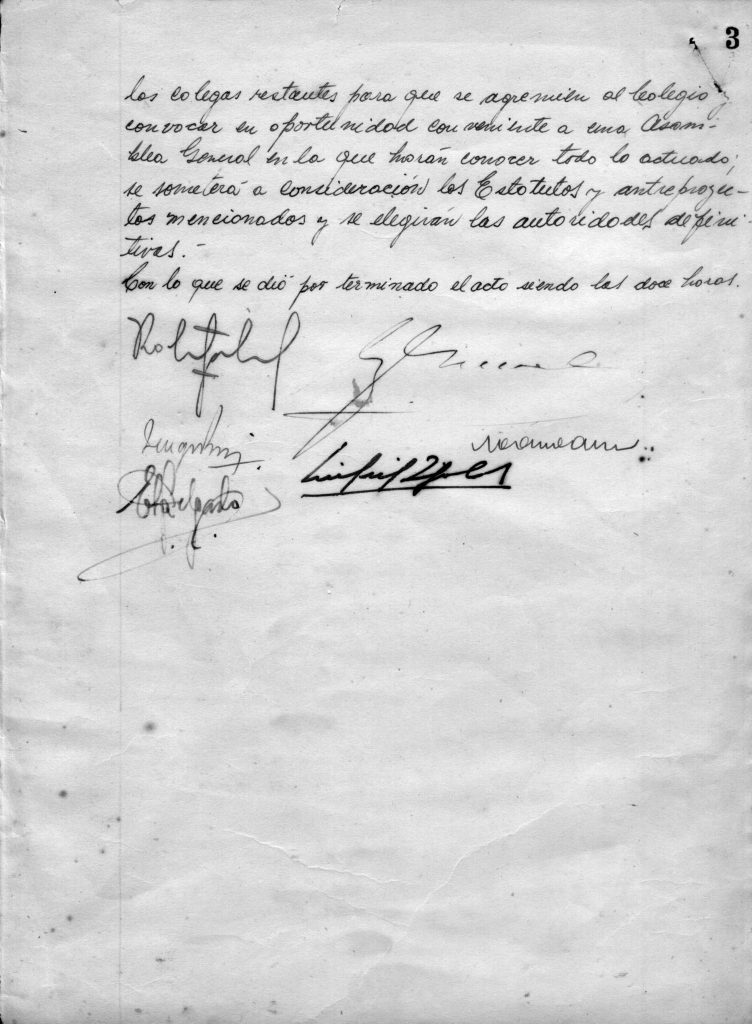 3
los colegas restantes para que se agremien al Colegio y
convocar en oportunidad conveniente a una Asam-
blea General en la que harán conocer todo lo actuado;
se someterá a consideración los Estatutos y antreproyec-
tos mencionados y se elegirán las autoridades defini-
tivas.-
Con lo que se dió por terminado el acto siendo las doce horas.